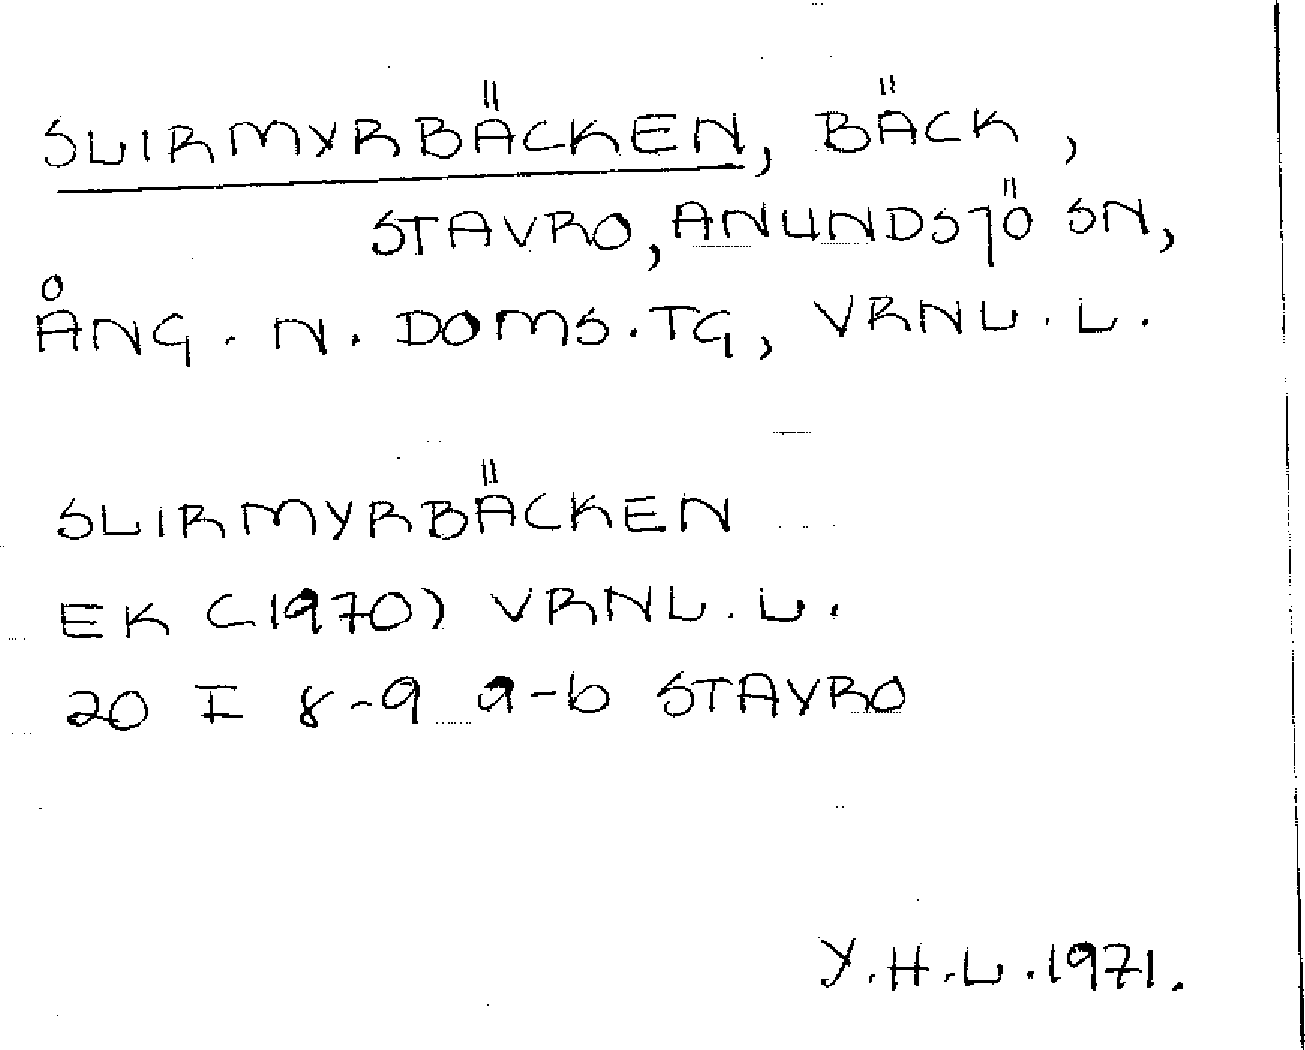 SLIRMYRBÄCKEN, BÄCK,
STAVRO, ANUNDSJÖ SN,
ÅNG. N. DOMS.TG, VRNL. L.
SLIRMYRBÄCKEN
EK (1970) VRNL. L.
20 I 8-9 a-b STAVRO
Y.H.L. 1971.